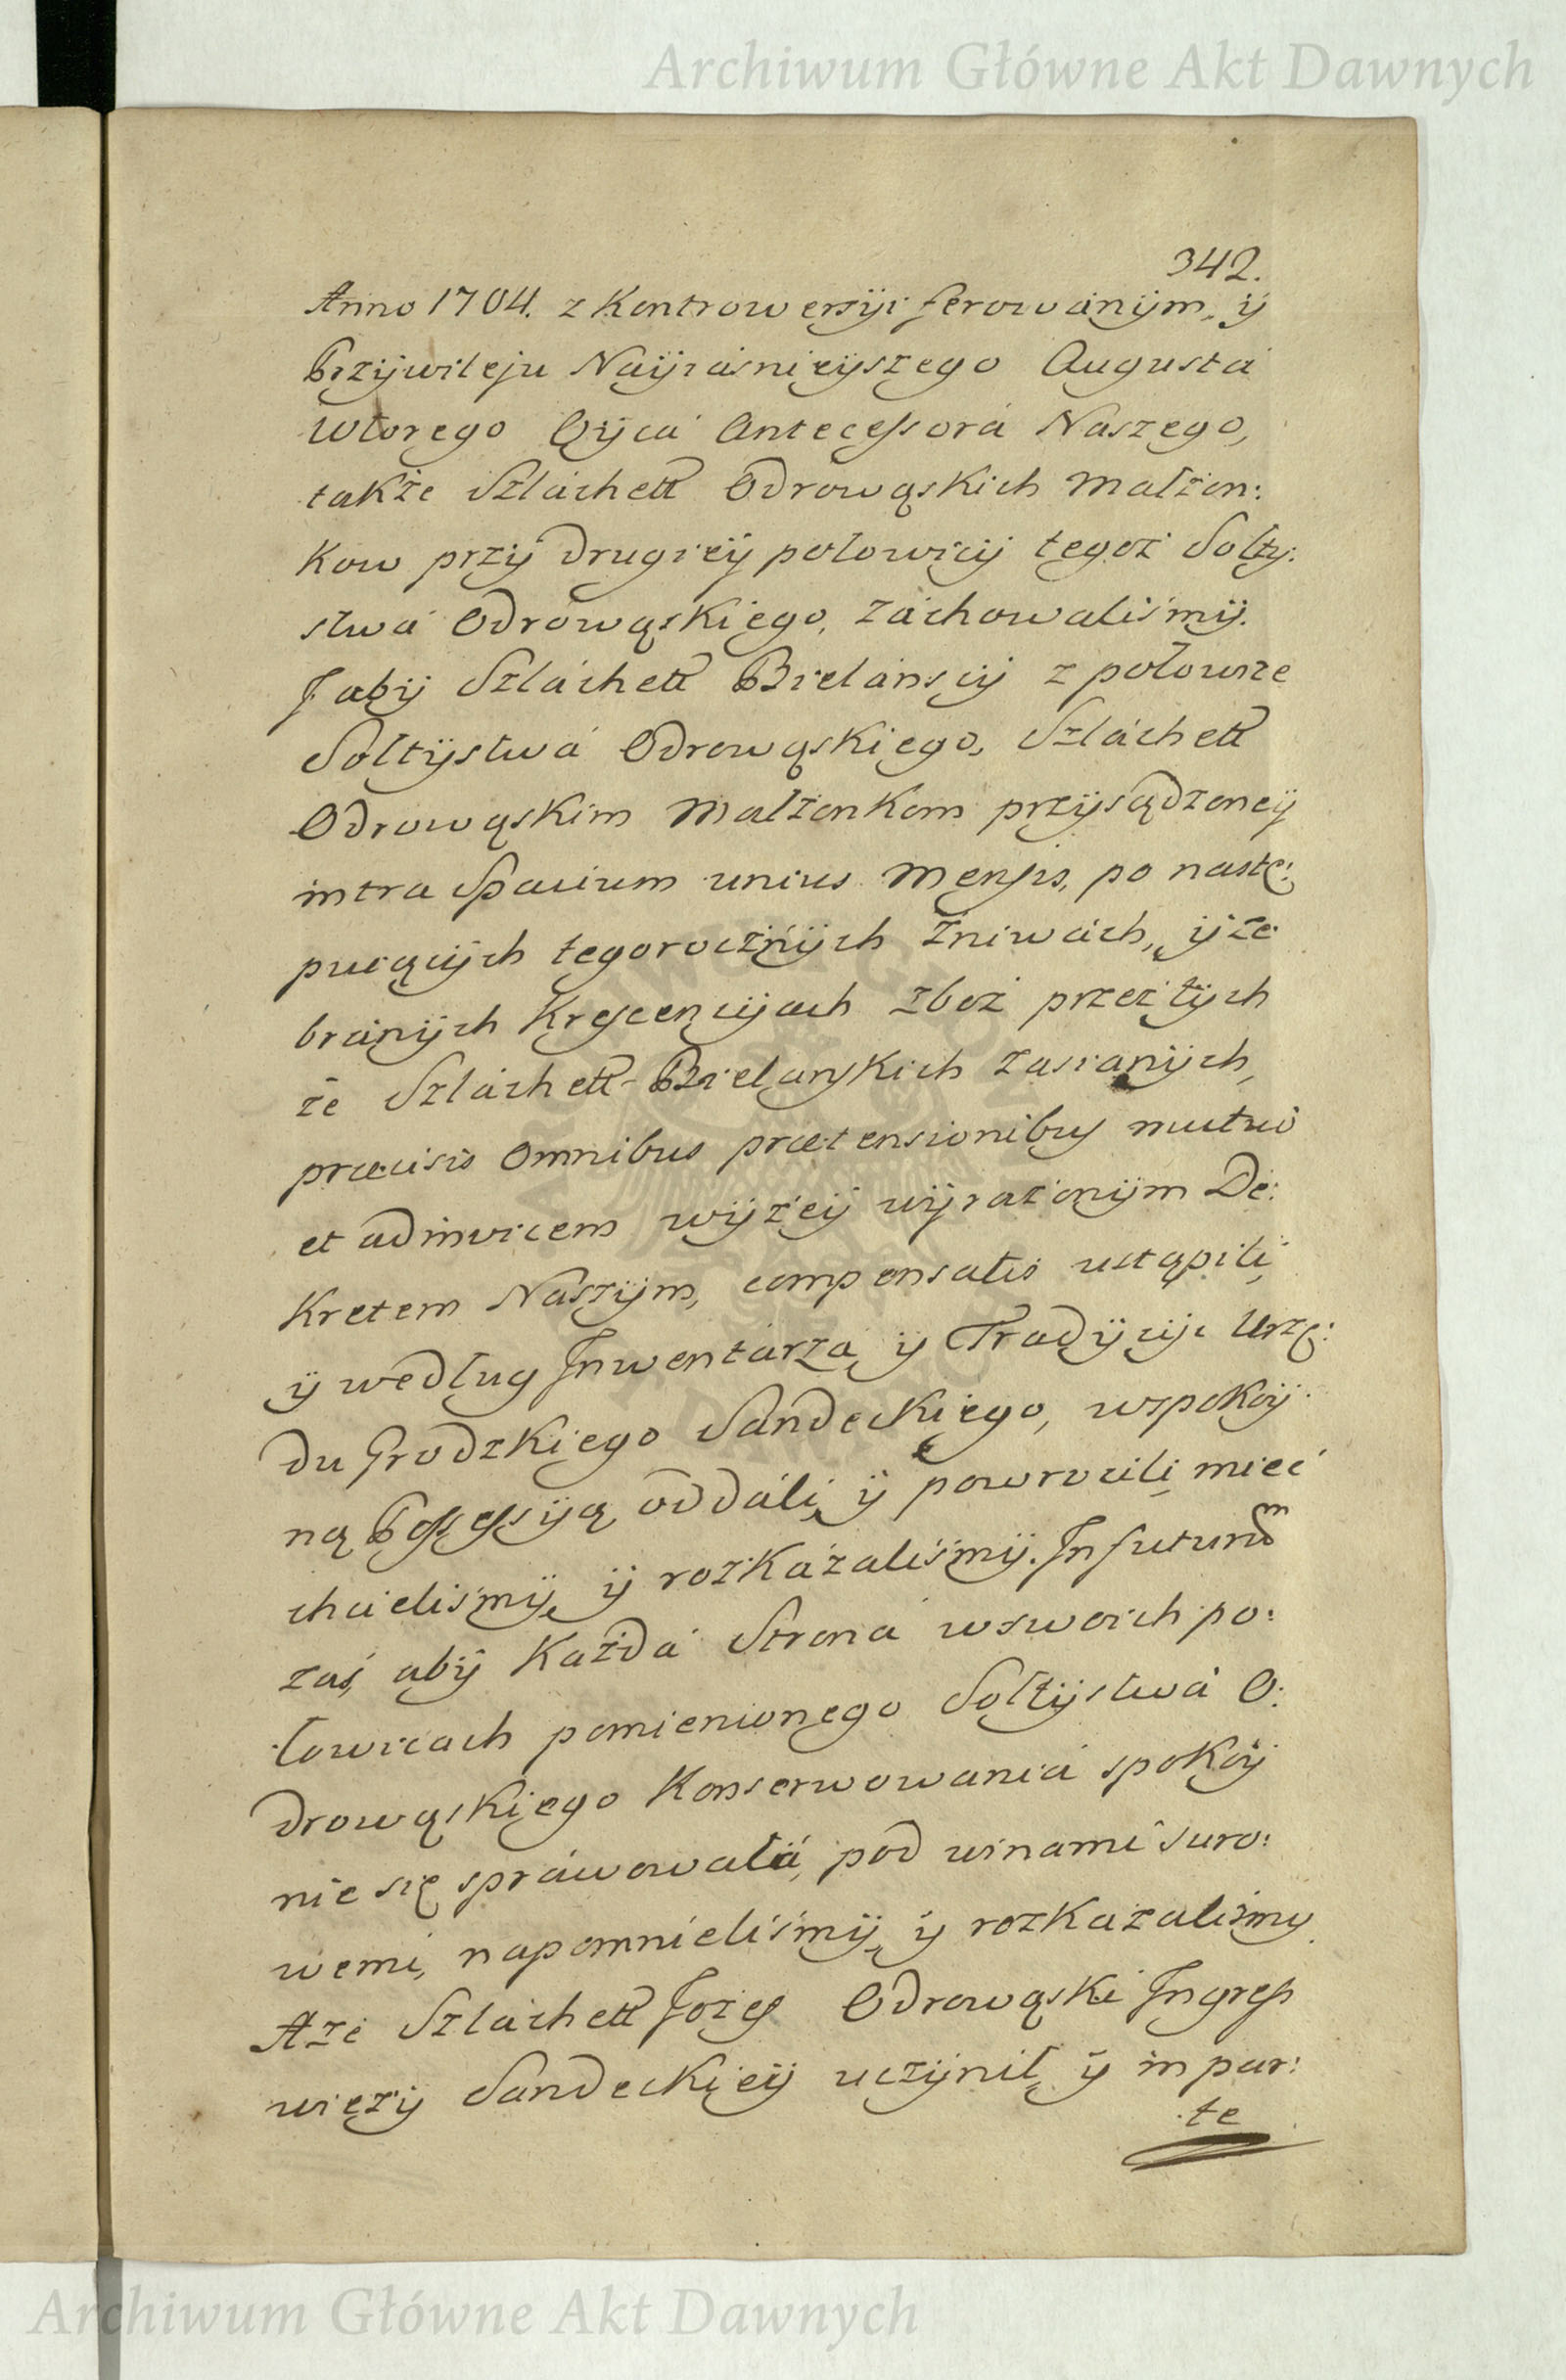 Archiwum Główne Akt Dawnych
342.
Anno 1704. z Kontrowersÿi ferowanÿm, ÿ
Przÿwileju Naÿiasnieÿszego Augustá
wtorego Oÿcá Antecessorá Naszego,
także Szláchett Odrowąskich Małżon:
Kow przÿ drugieÿ połowicÿ tegoż Sołtÿ:
stwá Odrowąskiego, záchowaliśmÿ.
Jabÿ Szláchett Bielánscÿ z połowice
Sołtÿstwá Odrowąskiego, Szláchett
Odrowąskim Małżonkom przÿsądzoneÿ
intra Spacium unius Mensis, po nastę:
puiącÿch tegorocznÿch żniwách, ÿ ze
branÿch Krescencÿach zboż przez tÿch
że Szláchett Bielanskich zasianÿch,
præcisis omnibus prætensionibus mutuò
et adinvicem wÿżeÿ wÿrażonÿm De:
Kretem Naszÿm, compensatis ustąpili
ÿ według Jnwentárza ÿ Tradÿcÿi Urzę:
du Grodzkiego Sandeckiego, wspokoÿ
ną Possessÿą oddáli, ÿ powrocili mieć
chcieliśmÿ, ÿ rozkázaliśmÿ. Jn futurum
zaś, abÿ Káżdá Stroná wswoich po:
łowicach pomienionego Sołtÿstwá O:
drowąskiego Konserwowaniá spokoÿ
nie się spráwowałá, pod winami suro:
wemi, napomnieliśmÿ, ÿ rozkazaliśmy
A że Szláchett Jozef Odrowąski Jngress
wieżÿ Sandeckieÿ uczÿnił, ÿ in par:
te
Archiwum Główne Akt Dawnych